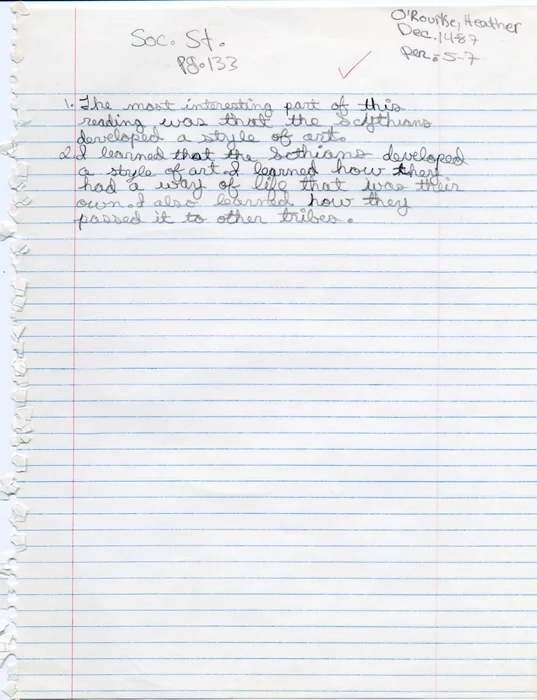 O'Rourke, Heather
Soc. St.
Dec. 14-87
pg. 133
per. 5-7
1. The most interesting part of this
reading was that the Scythians
developed a style of art.
2. I learned that the Scthians developed
a style of art. I learned how they
had a way of life that was their
own. I also learned how they
passed it to other tribes.